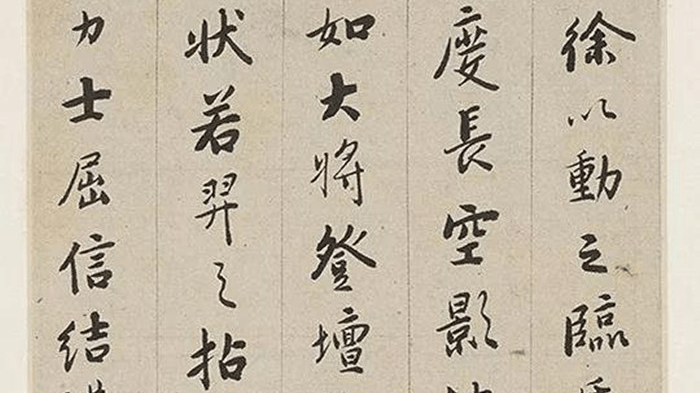 徐以動之臨
度長空影
如大將登壇
狀若羿之拈
力士屈信結